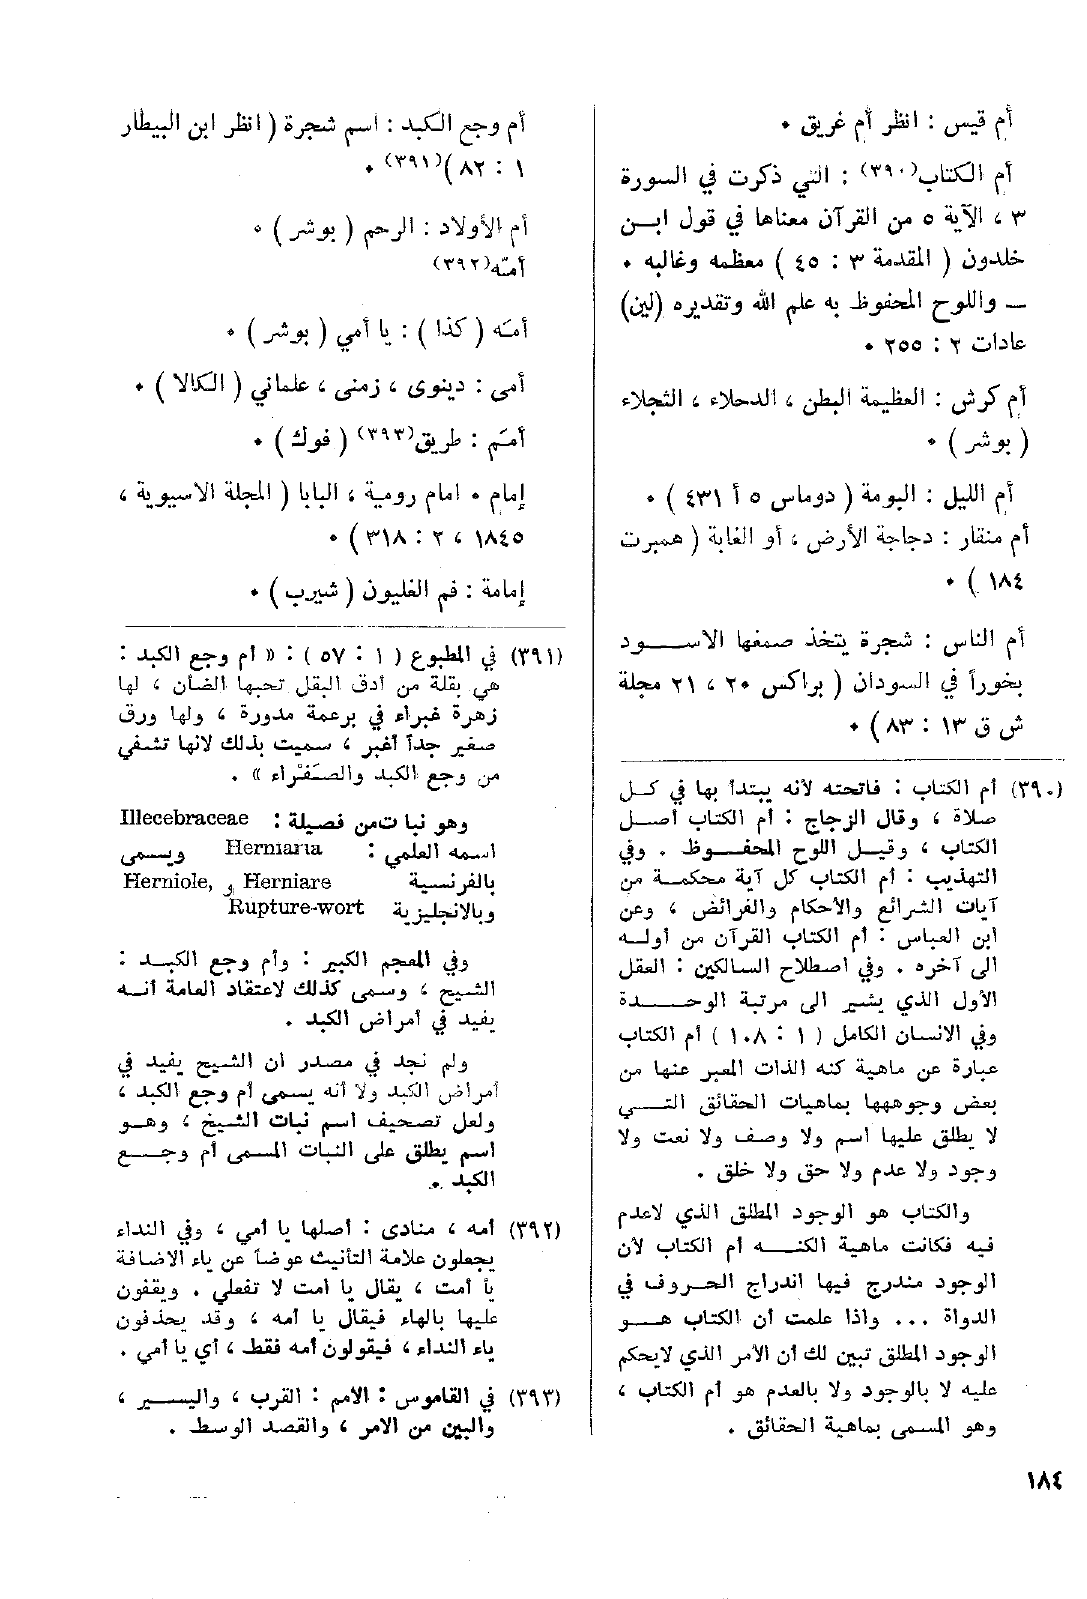 أم قيس : انظر أم غريق .
أم الكتاب(٣٩٠) : التي ذكرت في السورة
٣ ، الآية ٥ من القرآن معناها في قول ابـن
خلدون ( المقدمة ٣ : ٤٥ ) معظمه وغالبه .
— واللوح المحفوظ به علم الله وتقديره (لين)
عادات ٢ : ٢٥٥ .
أم كرش : العظيمة البطن ، الدحلاء ، الثجلاء
( بوشر ) .
أم الليل : البومة ( دوماس ٥ أ ٤٣١ ) .
أم منقار : دجاجة الأرض ، أو الغابة ( همبرت
١٨٤ ) .
أم الناس : شجرة يتخذ صمغها الاسـود
بخوراً في السودان ( براكس ٢٠ ، ٢١ مجلة
ش ق ١٣ : ٨٣ ) .
(٣٩٠) أم الكتاب : فاتحته لأنه يبتدأ بها في كـل
صلاة ، وقال الزجاج : أم الكتاب أصـل
الكتاب ، وقيـل اللوح المحفـوظ . وفي
التهذيب : أم الكتاب كل آية محكمـة من
آيات الشرائع والأحكام والفرائض ، وعن
ابن العباس : أم الكتاب القرآن من أولـه
الى آخره . وفي اصطلاح السالكين : العقل
الأول الذي يشير الى مرتبة الوحـدة
وفي الانسان الكامل ( ١ : ١٠٨ ) أم الكتاب
عبارة عن ماهية كنه الذات المعبر عنها من
بعض وجوهها بماهيات الحقائق التـي
لا يطلق عليها اسم ولا وصف ولا نعت ولا
وجود ولا عدم ولا حق ولا خلق .
والكتاب هو الوجود المطلق الذي لاعدم
فيه فكانت ماهية الكنـه أم الكتاب لأن
الوجود مندرج فيها اندراج الحـروف في
الدواة ... واذا علمت أن الكتاب هـو
الوجود المطلق تبين لك أن الأمر الذي لايحكم
عليه لا بالوجود ولا بالعدم هو أم الكتاب ،
وهو المسمى بماهية الحقائق .
أم وجع الكبد : اسم شجرة ( انظر ابن البيطار
١ : ٨٢ )(٣٩١) .
أم الأولاد : الرحم ( بوشر ) .
أمته(٣٩٢)
أمته ( كذا ) : يا أمي ( بوشر ) .
أمى : دينوى ، زمنى ، علماني ( الكالا ) .
أمتم : طريق(٣٩٣) ( فوك ) .
إمام . امام رومية ، البابا ( المجلة الاسيوية ،
١٨٤٥ ، ٢ : ٣١٨ ) .
إمامة : فم الغليون ( شيرب ) .
(٣٩١) في المطبوع ( ١ : ٥٧ ) : « أم وجع الكبد :
هي بقلة من أدق البقل تحبها الضأن ، لها
زهرة غبراء في برعمة مدورة ، ولها ورق
صغير جداً أغبر ، سميت بذلك لانها تشفي
من وجع الكبد والصَفْراء » .
وهو نبا ت‌من فصيلة : Illecebraceae
اسمه العلمي : Herniaria ويسمى
بالفرنسية Herniare و Herniole,
وبالانجليزية Rupture-wort
وفي المعجم الكبير : وأم وجع الكبـد :
الشيح ، وسمى كذلك لاعتقاد العامة أنـه
يفيد في أمراض الكبد .
ولم نجد في مصدر ان الشيح يفيد في
أمراض الكبد ولا أنه يسمى أم وجع الكبد ،
ولعل تصحيف اسم نبات الشيخ ، وهـو
اسم يطلق على النبات المسمى أم وجـع
الكبد .
(٣٩٢) أمه ، منادى : أصلها يا أمي ، وفي النداء
يجعلون علامة التأنيث عوضاً عن ياء الاضافة
يا أمت ، يقال يا أمت لا تفعلي . ويقفون
عليها بالهاء فيقال يا أمه ، وقد يحذفون
ياء النداء ، فيقولون أمه فقط ، أي يا أمي .
(٣٩٣) في القاموس : الأمم : القرب ، واليسـير ،
والبين من الامر ، والقصد الوسط .
١٨٤